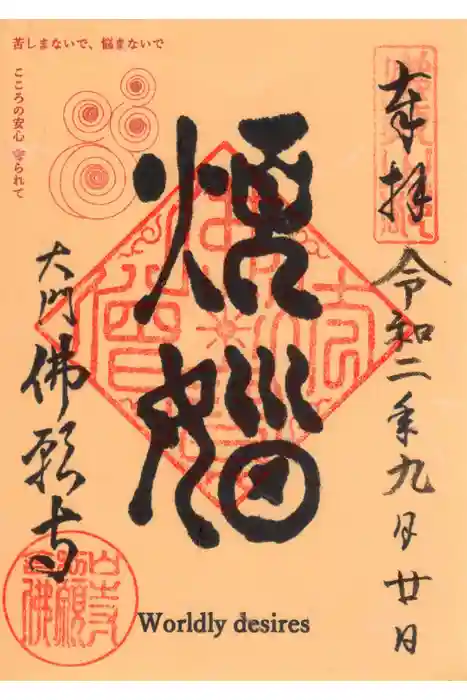 苦しまないで、悩まないで
こころの安心 得られて
奉拝
令和二年九月廿日
煩悩
大門
佛願寺
Worldly desires